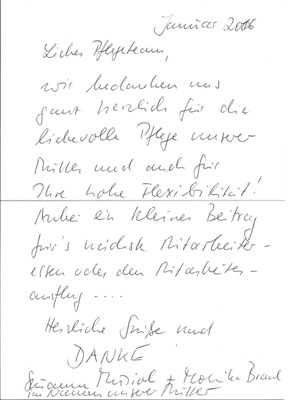 Januar 2016
Liebes Pflegeteam,
wir bedanken uns
ganz herzlich für die
liebevolle Pflege unserer
Mutter und auch für
Ihre hohe Flexibilität!
Anbei ein kleiner Beitrag
für's nächste Mitarbeiter-
essen oder den Mitarbeiter-
ausflug ....
Herzliche Grüße und
DANKE
Susanne + Monika
im Namen unserer Mutter